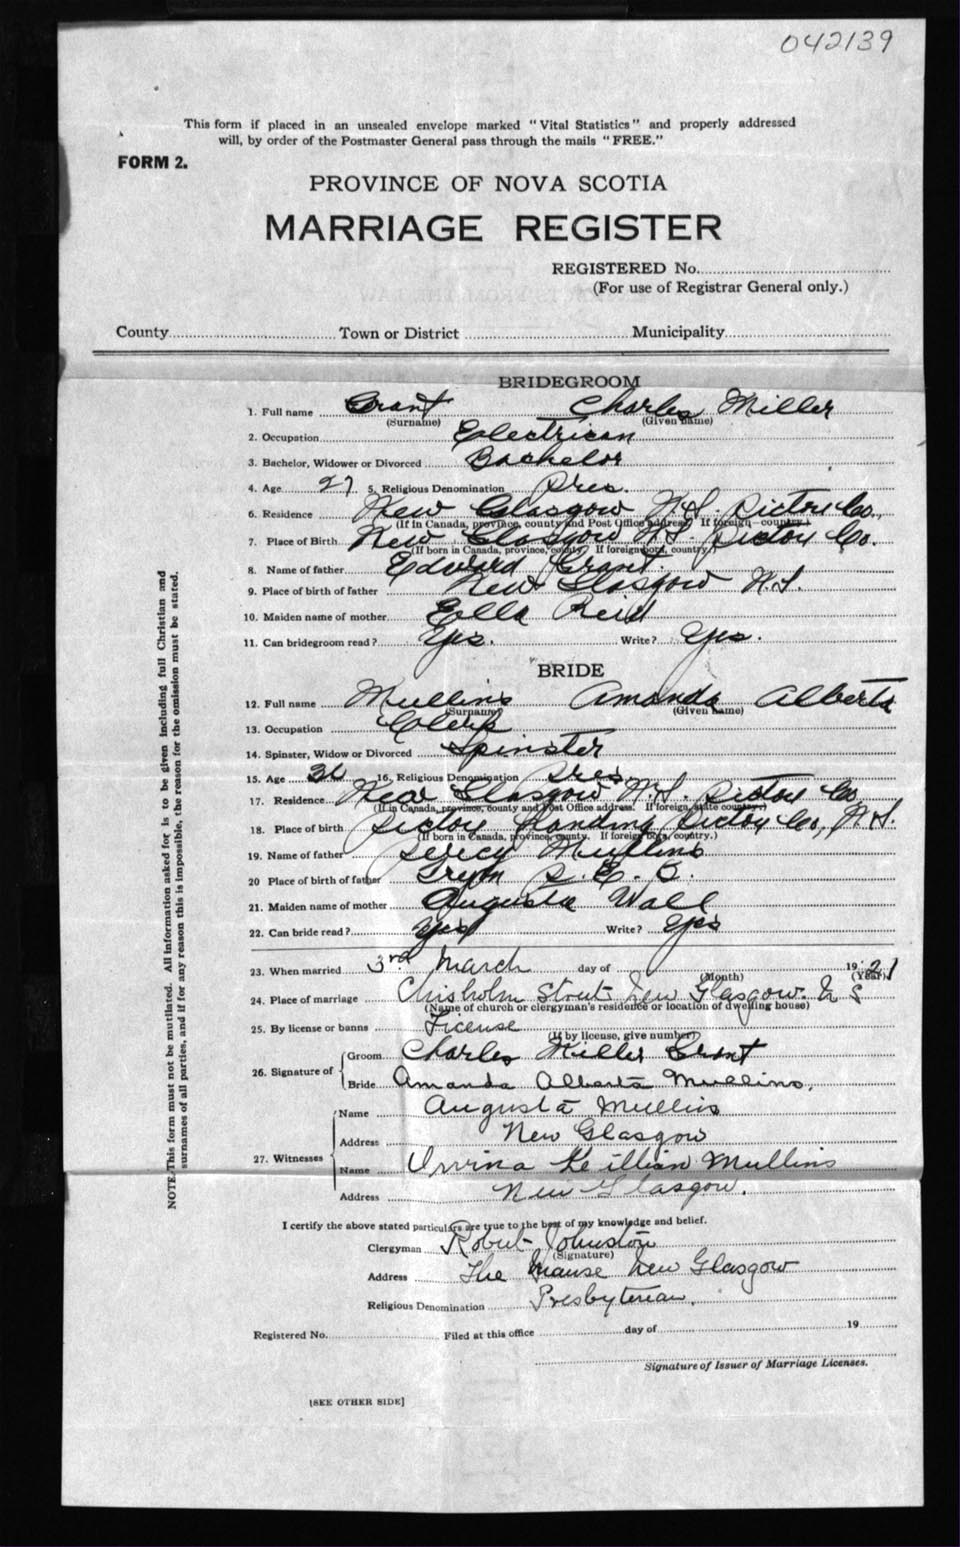 042139
This form if placed in an unsealed envelope marked "Vital Statistics" and properly addressed
will, by order of the Postmaster General pass through the mails "FREE."
FORM 2.
PROVINCE OF NOVA SCOTIA
MARRIAGE REGISTER
REGISTERED No.
(For use of Registrar General only.)
County Town or District Municipality
BRIDEGROOM
1. Full name Grant Charles Miller
(Surname) (Given name)
2. Occupation Electrican
3. Bachelor, Widower or Divorced Bachelor
4. Age 27 5. Religious Denomination Pres.
6. Residence New Glasgow N.S. Pictou Co.,
(If in Canada, province, county and Post Office address. If foreign country.)
7. Place of Birth New Glasgow N.S. Pictou Co.
(If born in Canada, province, county. If foreign born, country.)
8. Name of father Edward Grant.
9. Place of birth of father New Glasgow N.S.
10. Maiden name of mother Eella Reid
11. Can bridegroom read? Yes. Write? Yes.
BRIDE
12. Full name Mullins Amanda Alberta
(Surname) (Given name)
13. Occupation Clerk
14. Spinster, Widow or Divorced Spinster
15. Age 16. Religious Denomination Pres.
17. Residence New Glasgow N.S. Pictou Co
(If in Canada, province, county and Post Office address. If foreign, state country.)
18. Place of birth Pictou Landing Pictou Co, N.S.
(If born in Canada, province, county. If foreign born, country.)
19. Name of father Percy Mullins
20 Place of birth of father Tryon P. E. I.
21. Maiden name of mother Augusta Wall
22. Can bride read? Yes Write? Yes
23. When married 3rd March day of 1921
(Month) (Year)
24. Place of marriage Chisholm Street New Glasgow. N S
(Name of church or clergyman's residence or location of dwelling house)
25. By license or banns License
(If by license, give number)
26. Signature of Groom Charles Miller Grant
Bride Amanda Alberta Mullins.
27. Witnesses Name Augusta Mullins
Address New Glasgow
Name Mullins
Address New Glasgow.
I certify the above stated particulars are true to the best of my knowledge and belief.
Clergyman Robert Johnston
(Signature)
Address The Manse New Glasgow
Religious Denomination Presbyterian.
Registered No. Filed at this office day of 19
Signature of Issuer of Marriage Licenses.
[SEE OTHER SIDE]
NOTE.—This form must not be mutilated. All information asked for is to be given including full Christian and
surnames of all parties, and if for any reason this is impossible, the reason for the omission must be stated.